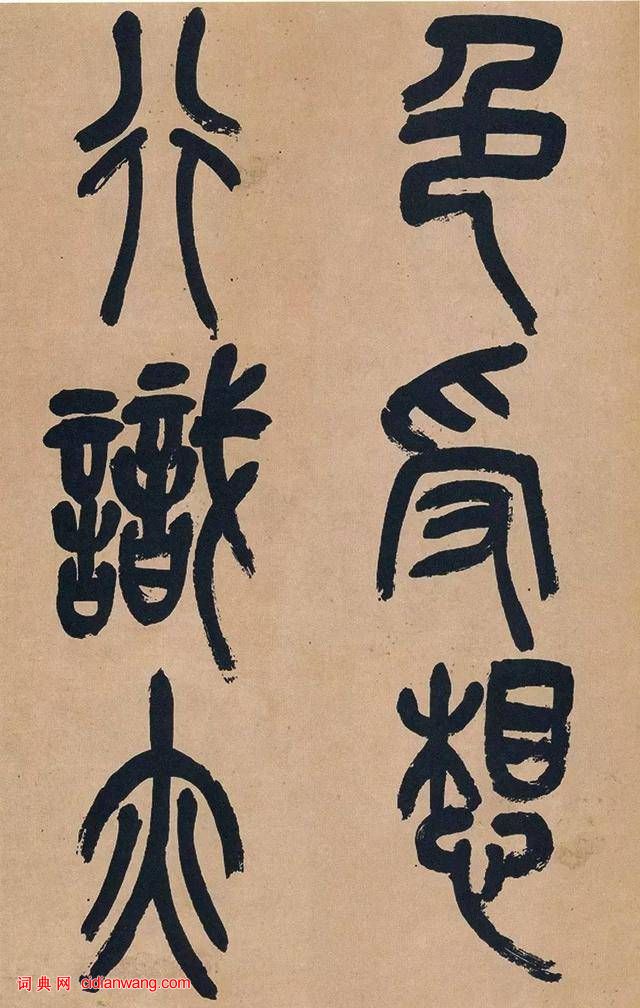 色受想
行識亦
词典网 cidianwang.com